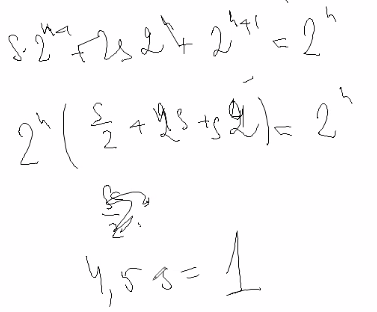 s·2^{n-1} + 2s2^n + 2^{n+1} = 2^n
2^n (s/2 + 2s + s2) = 2^n
4,5 s = 1